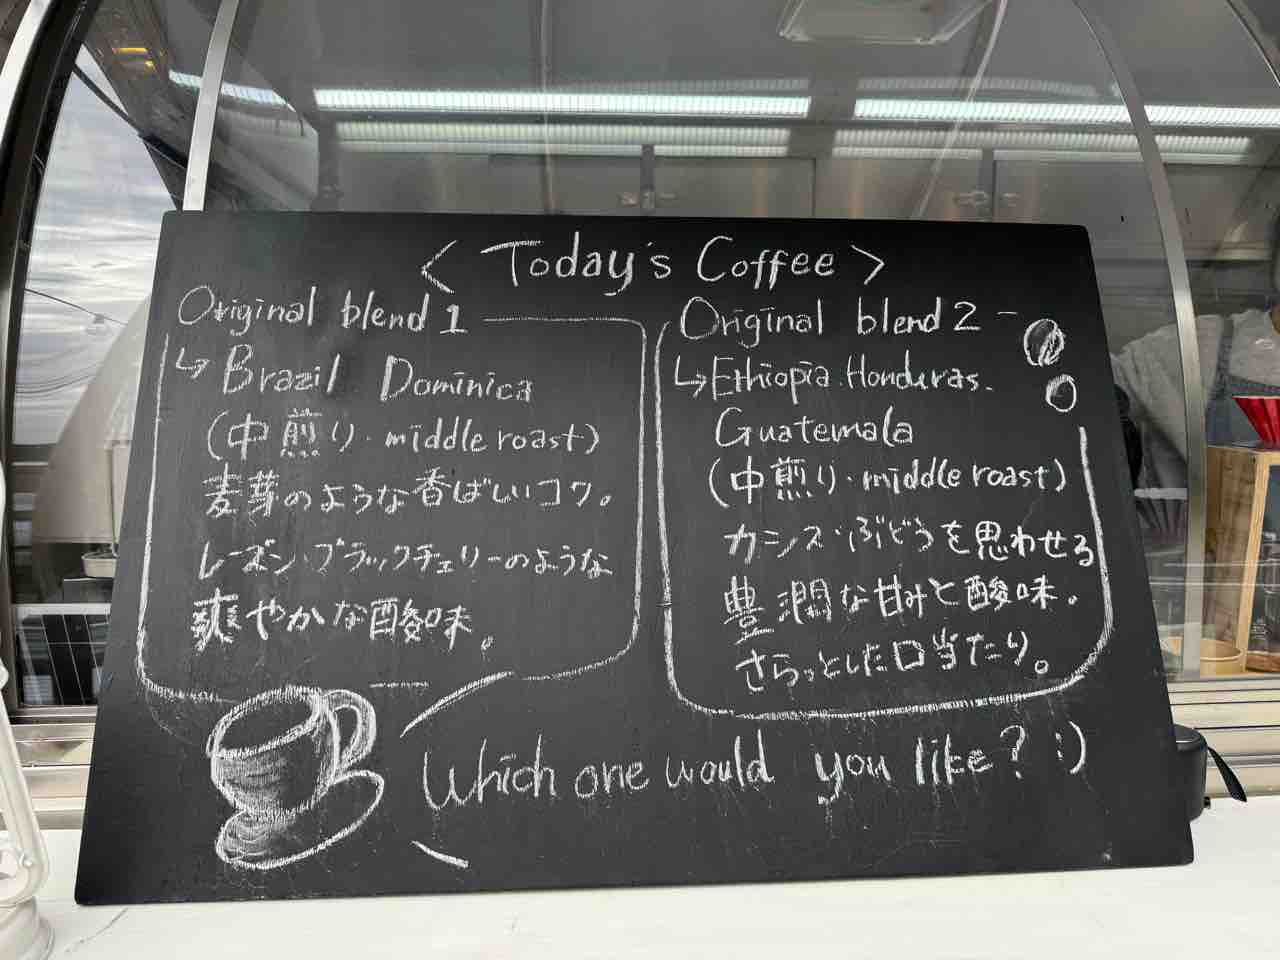 < Today's Coffee >
Original blend 1
↳ Brazil Dominica
(中煎り・middle roast)
麦芽のような香ばしいコク。
レーズン・ブラックチェリーのような
爽やかな酸味。
Original blend 2
↳ Ethiopia・Honduras・
Guatemala
(中煎り・middle roast)
カシス・ぶどうを思わせる
豊潤な甘みと酸味。
さらっとした口当たり。
Which one would you like? :)